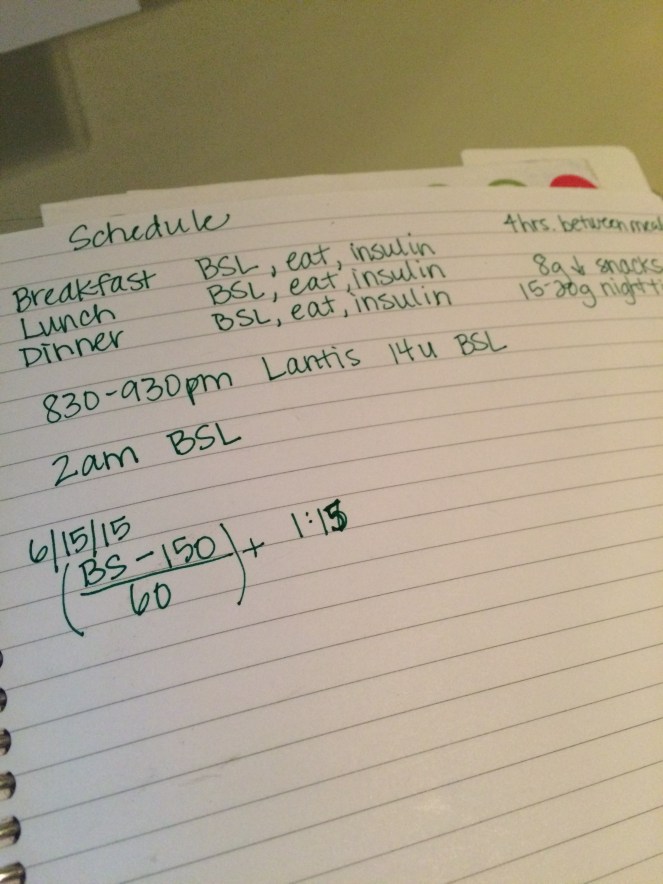 Schedule
4hrs. between meal
Breakfast BSL, eat, insulin
8g ↓ snacks
Lunch BSL, eat, insulin
15-20g nightti
Dinner BSL, eat, insulin
830-930pm Lantis 14u BSL
2am BSL
6/15/15
(BS-150
60) + 1:15